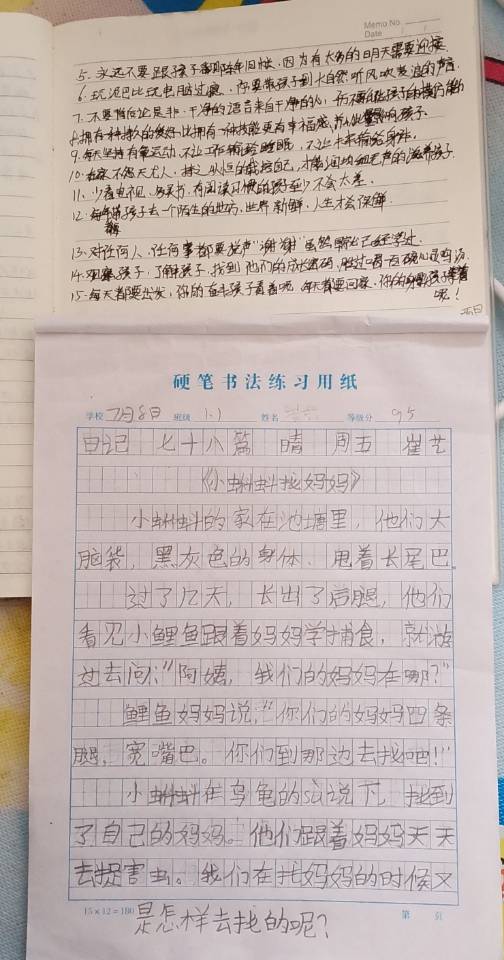 Memo No.
Date
5. 永远不要跟孩子翻陈年旧帐，因为有长多的明天需要迎接
6. 玩泥巴比玩电脑过瘾，你要带孩子到大自然听风吹麦浪的声音
7. 不要背后论是非，干净的语言来自干净的心
8. 拥有种的爱好比拥有一种技能更有幸福感
9. 每天坚持有氧运动，不让工作拖睡眠，不让未来输给身体
10. 不怨天尤人
11. 少看电视、多买书，有阅读习惯的孩至少不会太差.
12. 每年带孩子去一个陌生的地方，世界新鲜，人生才会保鲜
13. 对任何人、任何事都要说声"谢谢"虽然
14. 观察孩子，了解孩子，找到他们的成长密码，胜过喝一百碗心灵鸡汤
15. 每天都要出发，你的背影孩子看着呢，每天都要回家，你的孩子等着
呢！
硬笔书法练习用纸
学校 7月8日 班级 1.1 姓名 等级分 95
日记 七十八篇 晴 周五 崔艺
《小蝌蚪找妈妈》
小蝌蚪的家在池塘里，他们大
脑袋，黑灰色的身体，甩着长尾巴。
过了几天，长出了后腿，他们
看见小鲤鱼跟着妈妈学捕食，就游
过去问："阿姨，我们的妈妈在哪？"
鲤鱼妈妈说，"你们的妈妈四条
腿，宽嘴巴。你们到那边去找吧！"
小蝌蚪在乌龟的sù说下，找到
了自己的妈妈。他们跟着妈妈天天
去捉害虫。我们在找妈妈的时候又
15×12=180 是怎样去找的呢？ 第 页